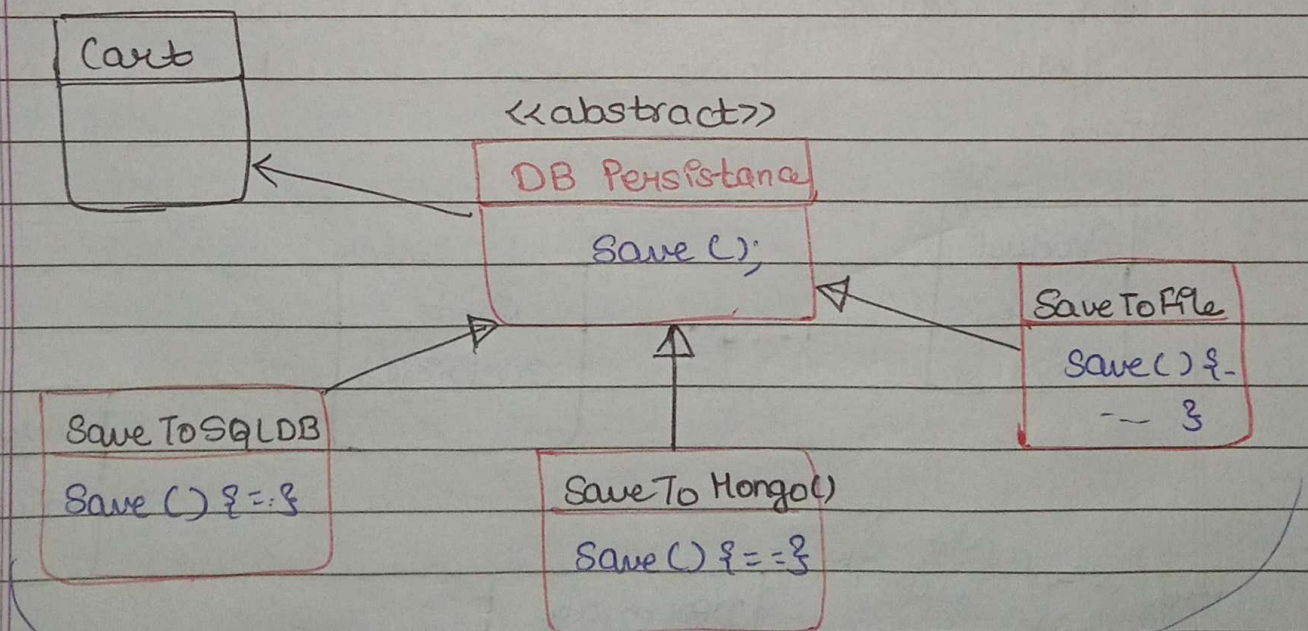 Cart
<<abstract>>
DB Persistance
Save ();
SaveToFile
Save () {-
-- }
Save ToSQLDB
Save () {=:}
Save To Mongo()
Save () {= =}